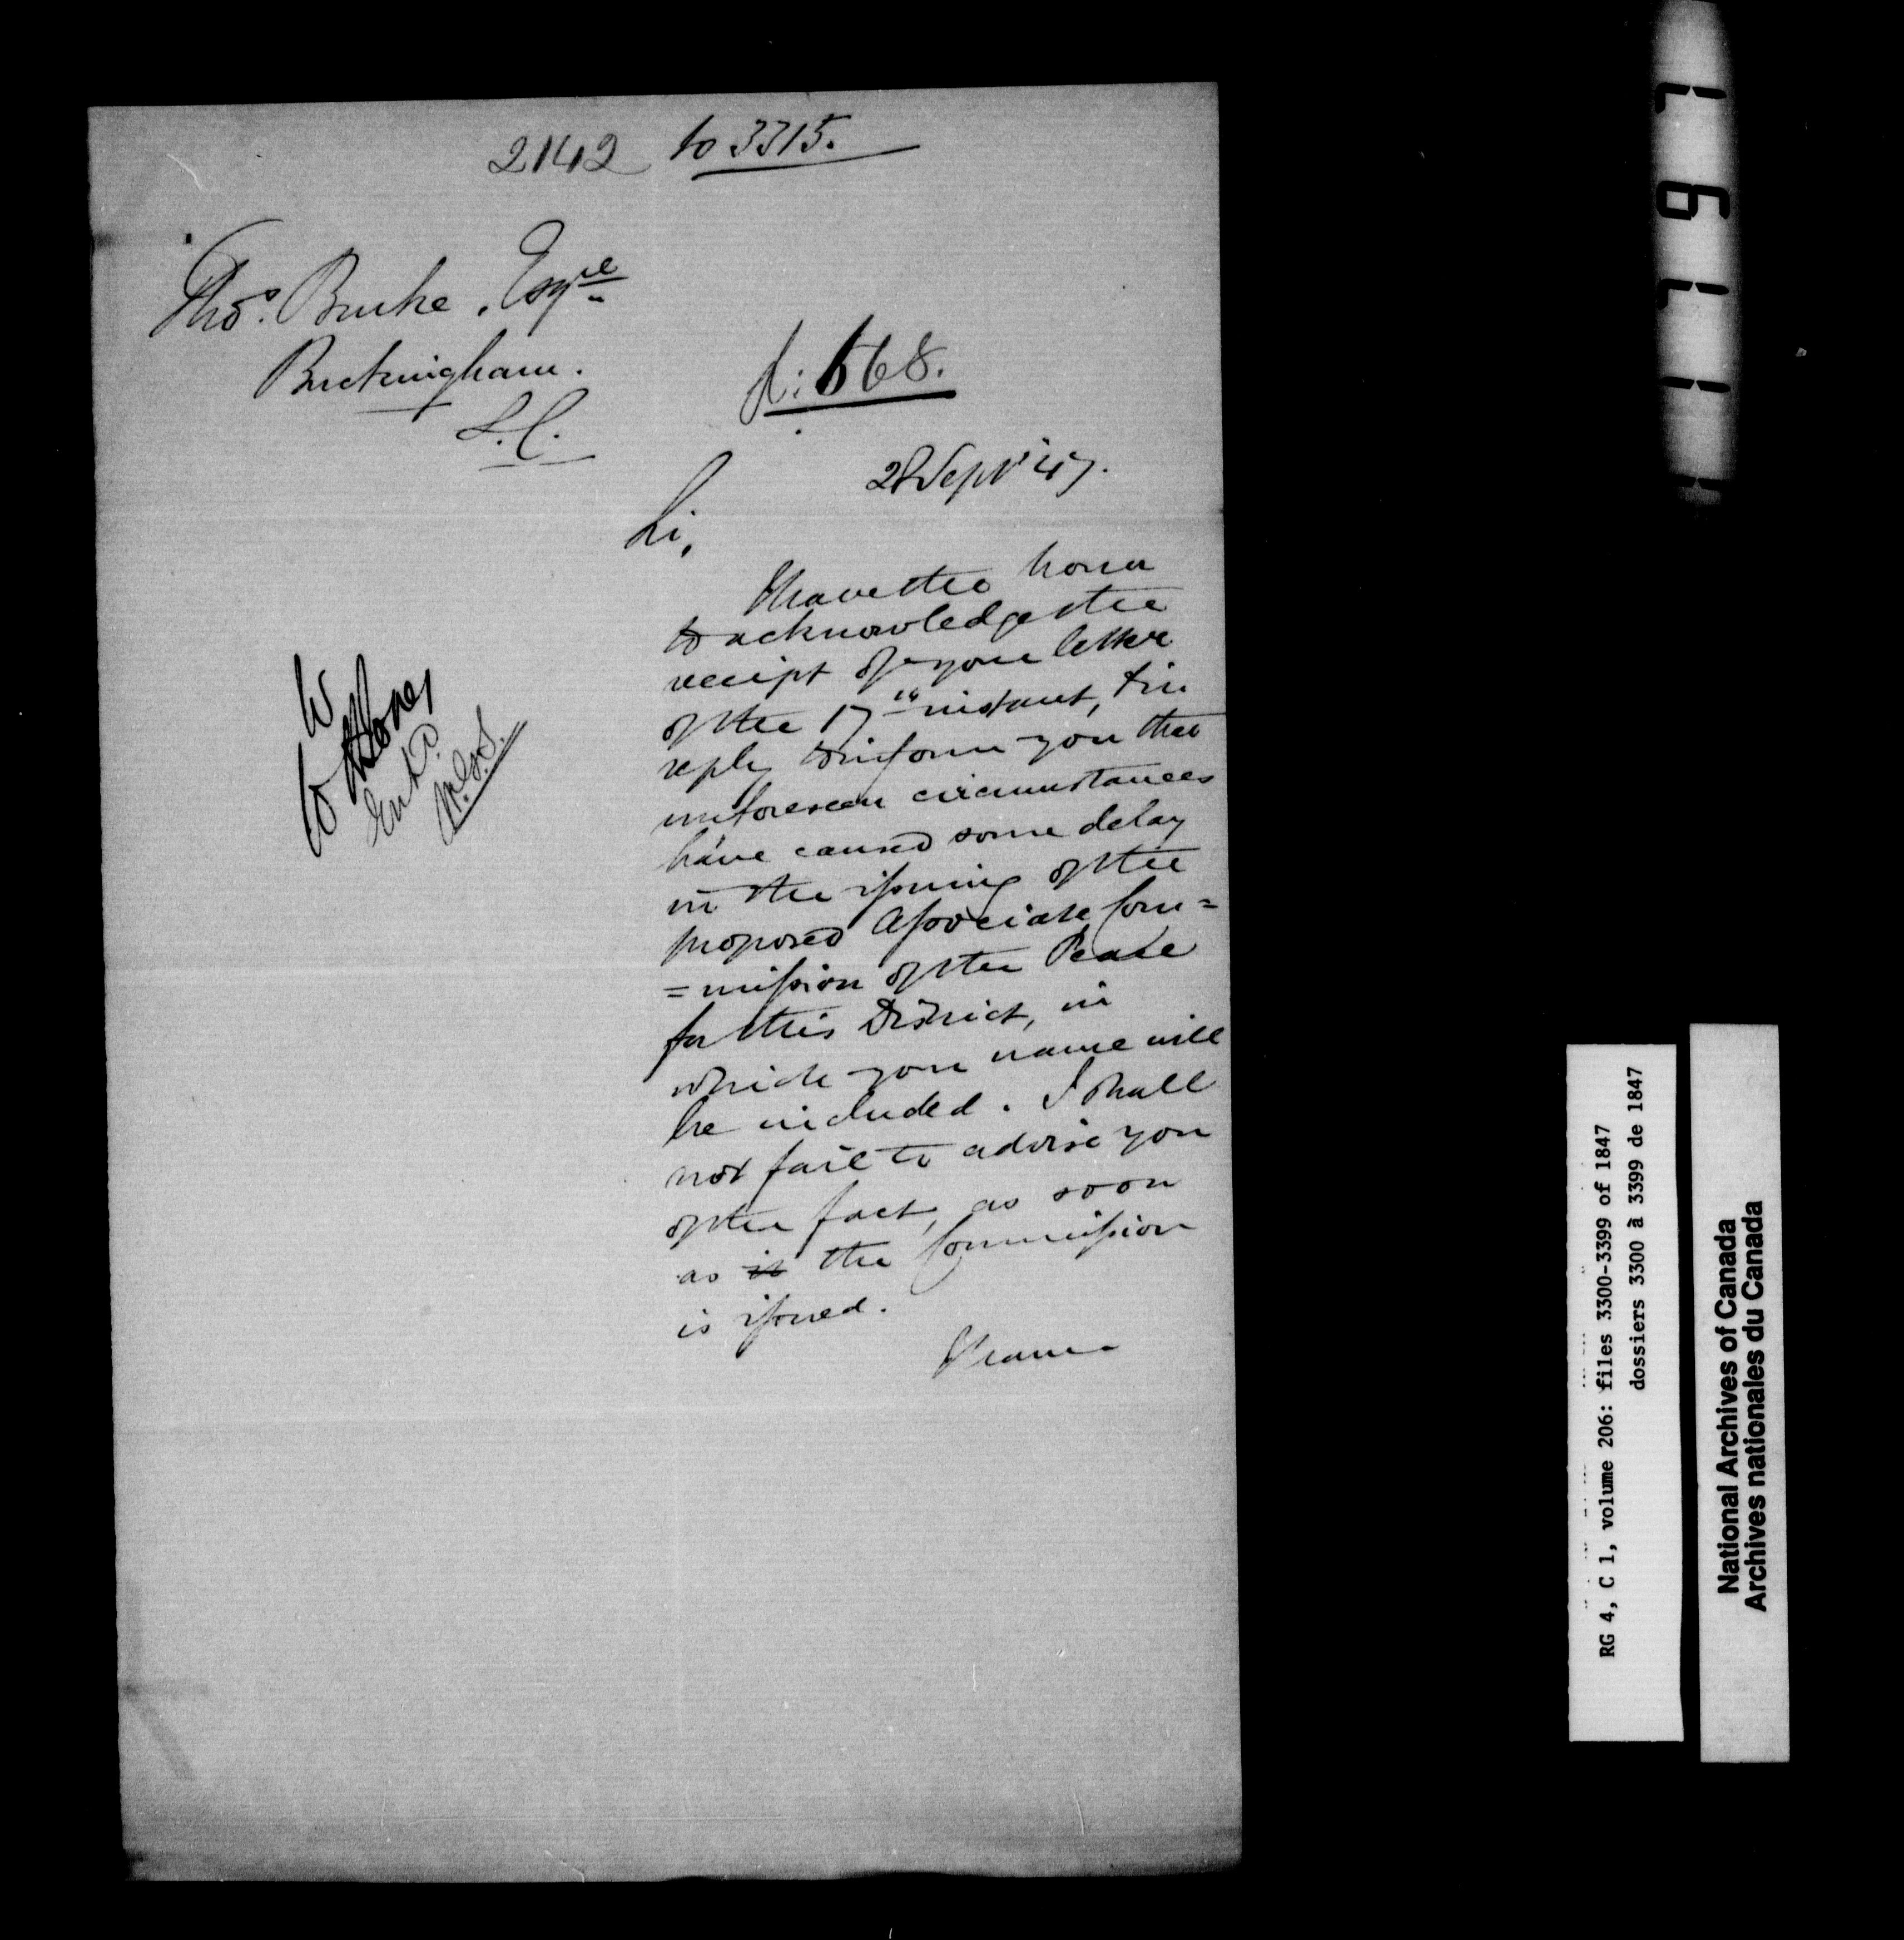 2142 to 3315.
Thos. Burke, Esqre
Buckingham.
L.C.
568.
28 Septr '47.
Sir,
I have the honor
to acknowledge the
receipt of your letter
of the 17th instant, & in
reply to inform you that
unforeseen circumstances
have caused some delay
in the issuing of the
proposed Associate Com=
=mission of the Peace
for this District, in
which your name will
be included. I shall
not fail to advise you
of the fact, as soon
as it the Commission
is issued.
I have
Entd.
RG 4, C 1, volume 206: files 3300-3399 of 1847
dossiers 3300 à 3399 de 1847
National Archives of Canada
Archives nationales du Canada